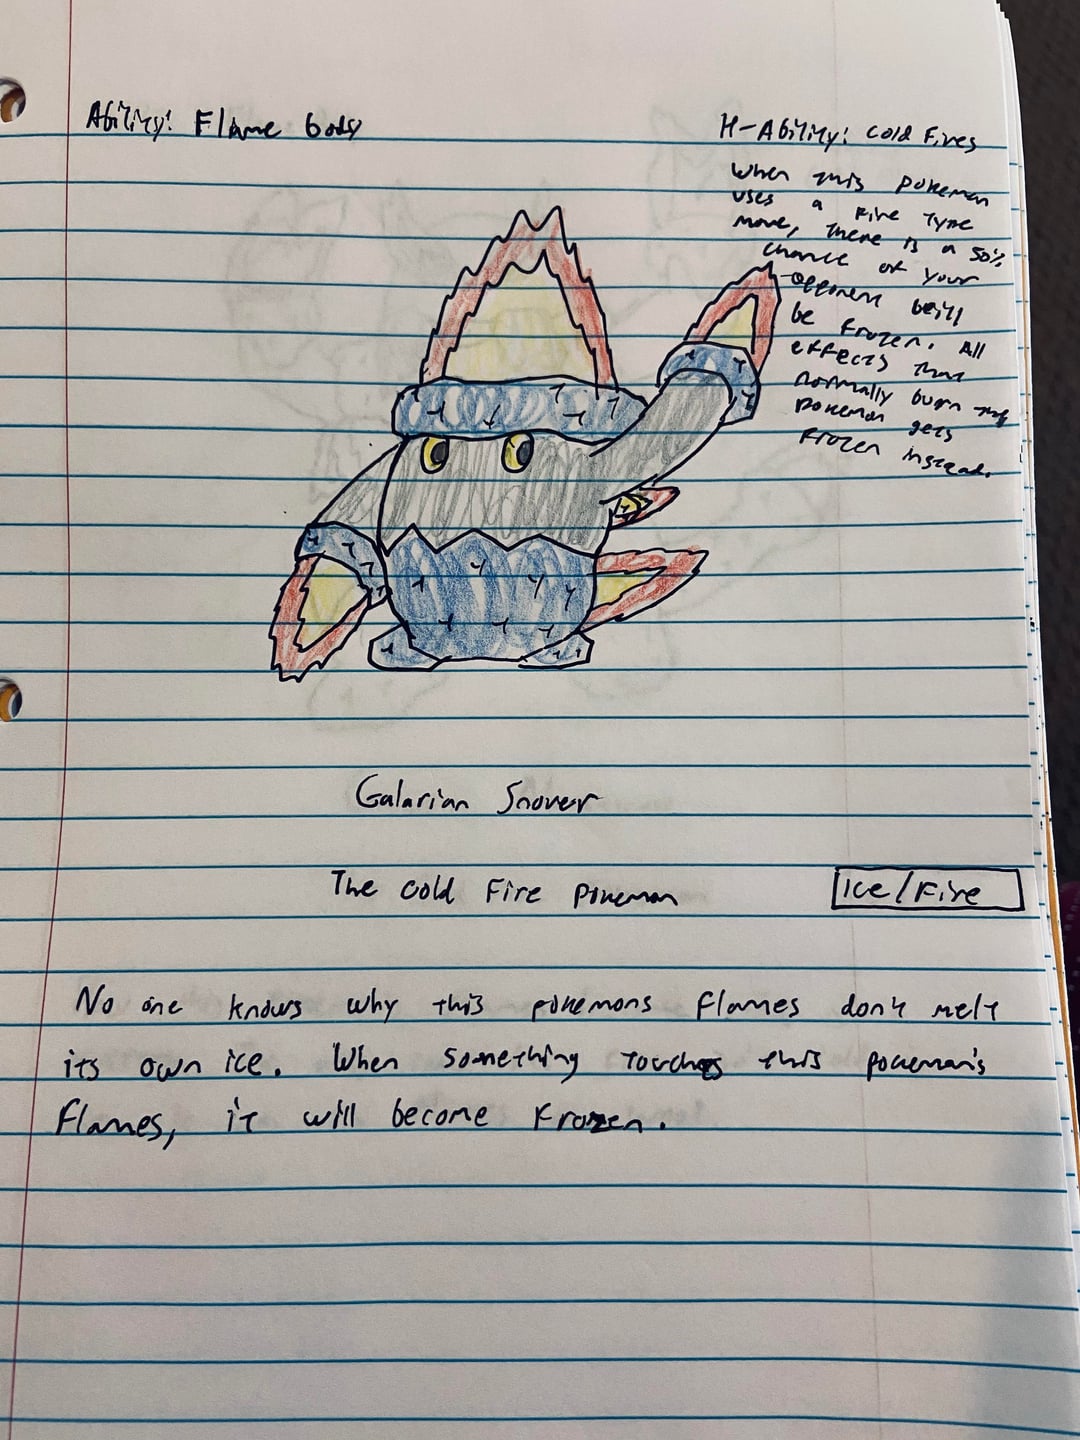 Ability: Flame body
H-Ability: Cold Fires
When this pokemon
uses a Fire type
move, there is a 50%
chance of your
opponent
be frozen. All
effects that
normally burn the
pokemon gets
frozen instead.
Galarian Snover
The Cold Fire Pokemon
Ice/Fire
No one knows why this pokemons flames don't melt
its own ice. When something touches this pokemon's
flames, it will become frozen.